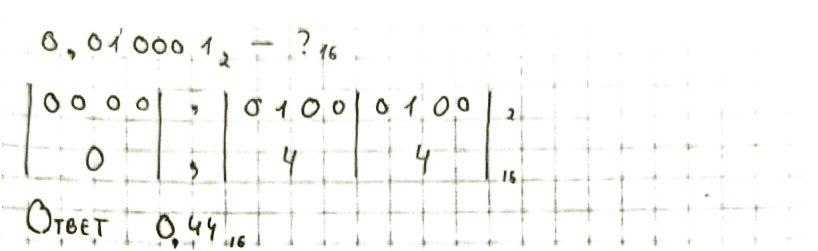 0,010001₂ – ?₁₆
|0000|,|0100|0100|₂
|0|,|4|4|₁₆
Ответ 0,44₁₆